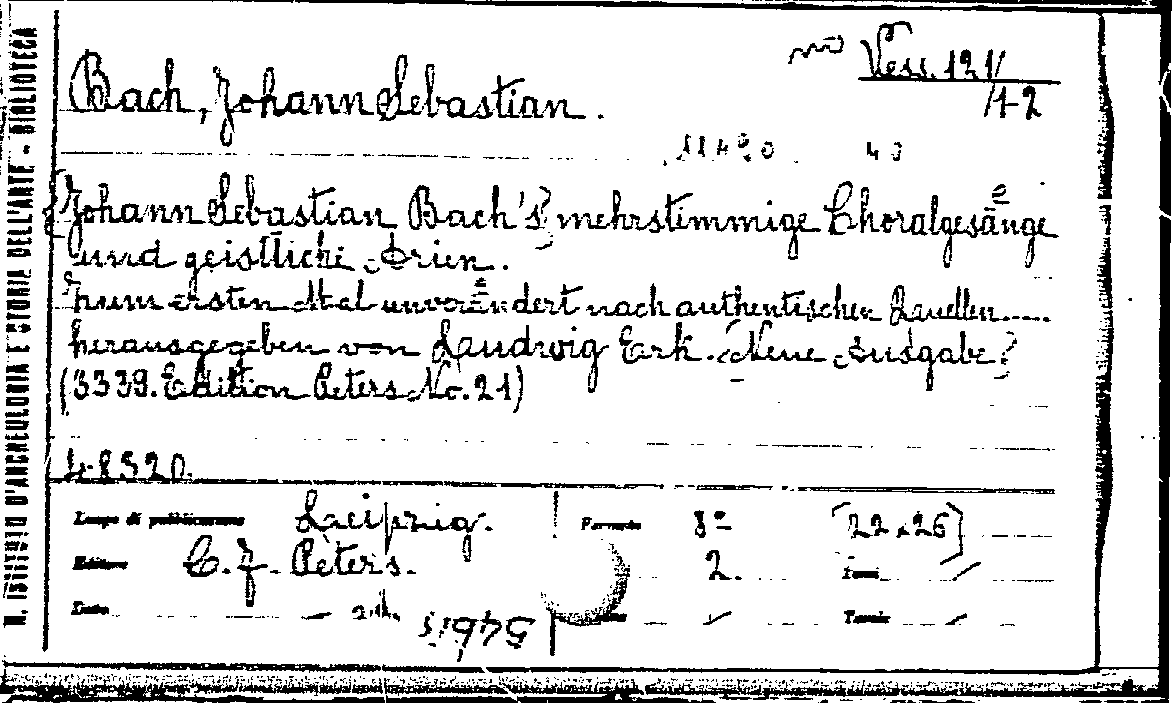 R. ISTITUTO D'ARCHEOLOGIA E STORIA DELL'ARTE - BIBLIOTECA
Vess. 121/
Bach, Johann Sebastian.
Johann Sebastian Bach's mehrstimmige Choralgesänge
und geistliche Arien.
zum ersten Mal unverändert nach authentischen Quellen.....
herausgegeben von Laudwig Erk. Neue Ausgabe?
(3339. Edition Peters No. 21)
48320.
Luogo di pubblicazione Laeipzig. Formato 8º [22 x 26]
Editore C. F. Peters. 2. Tomi /
Data - / Tavole /